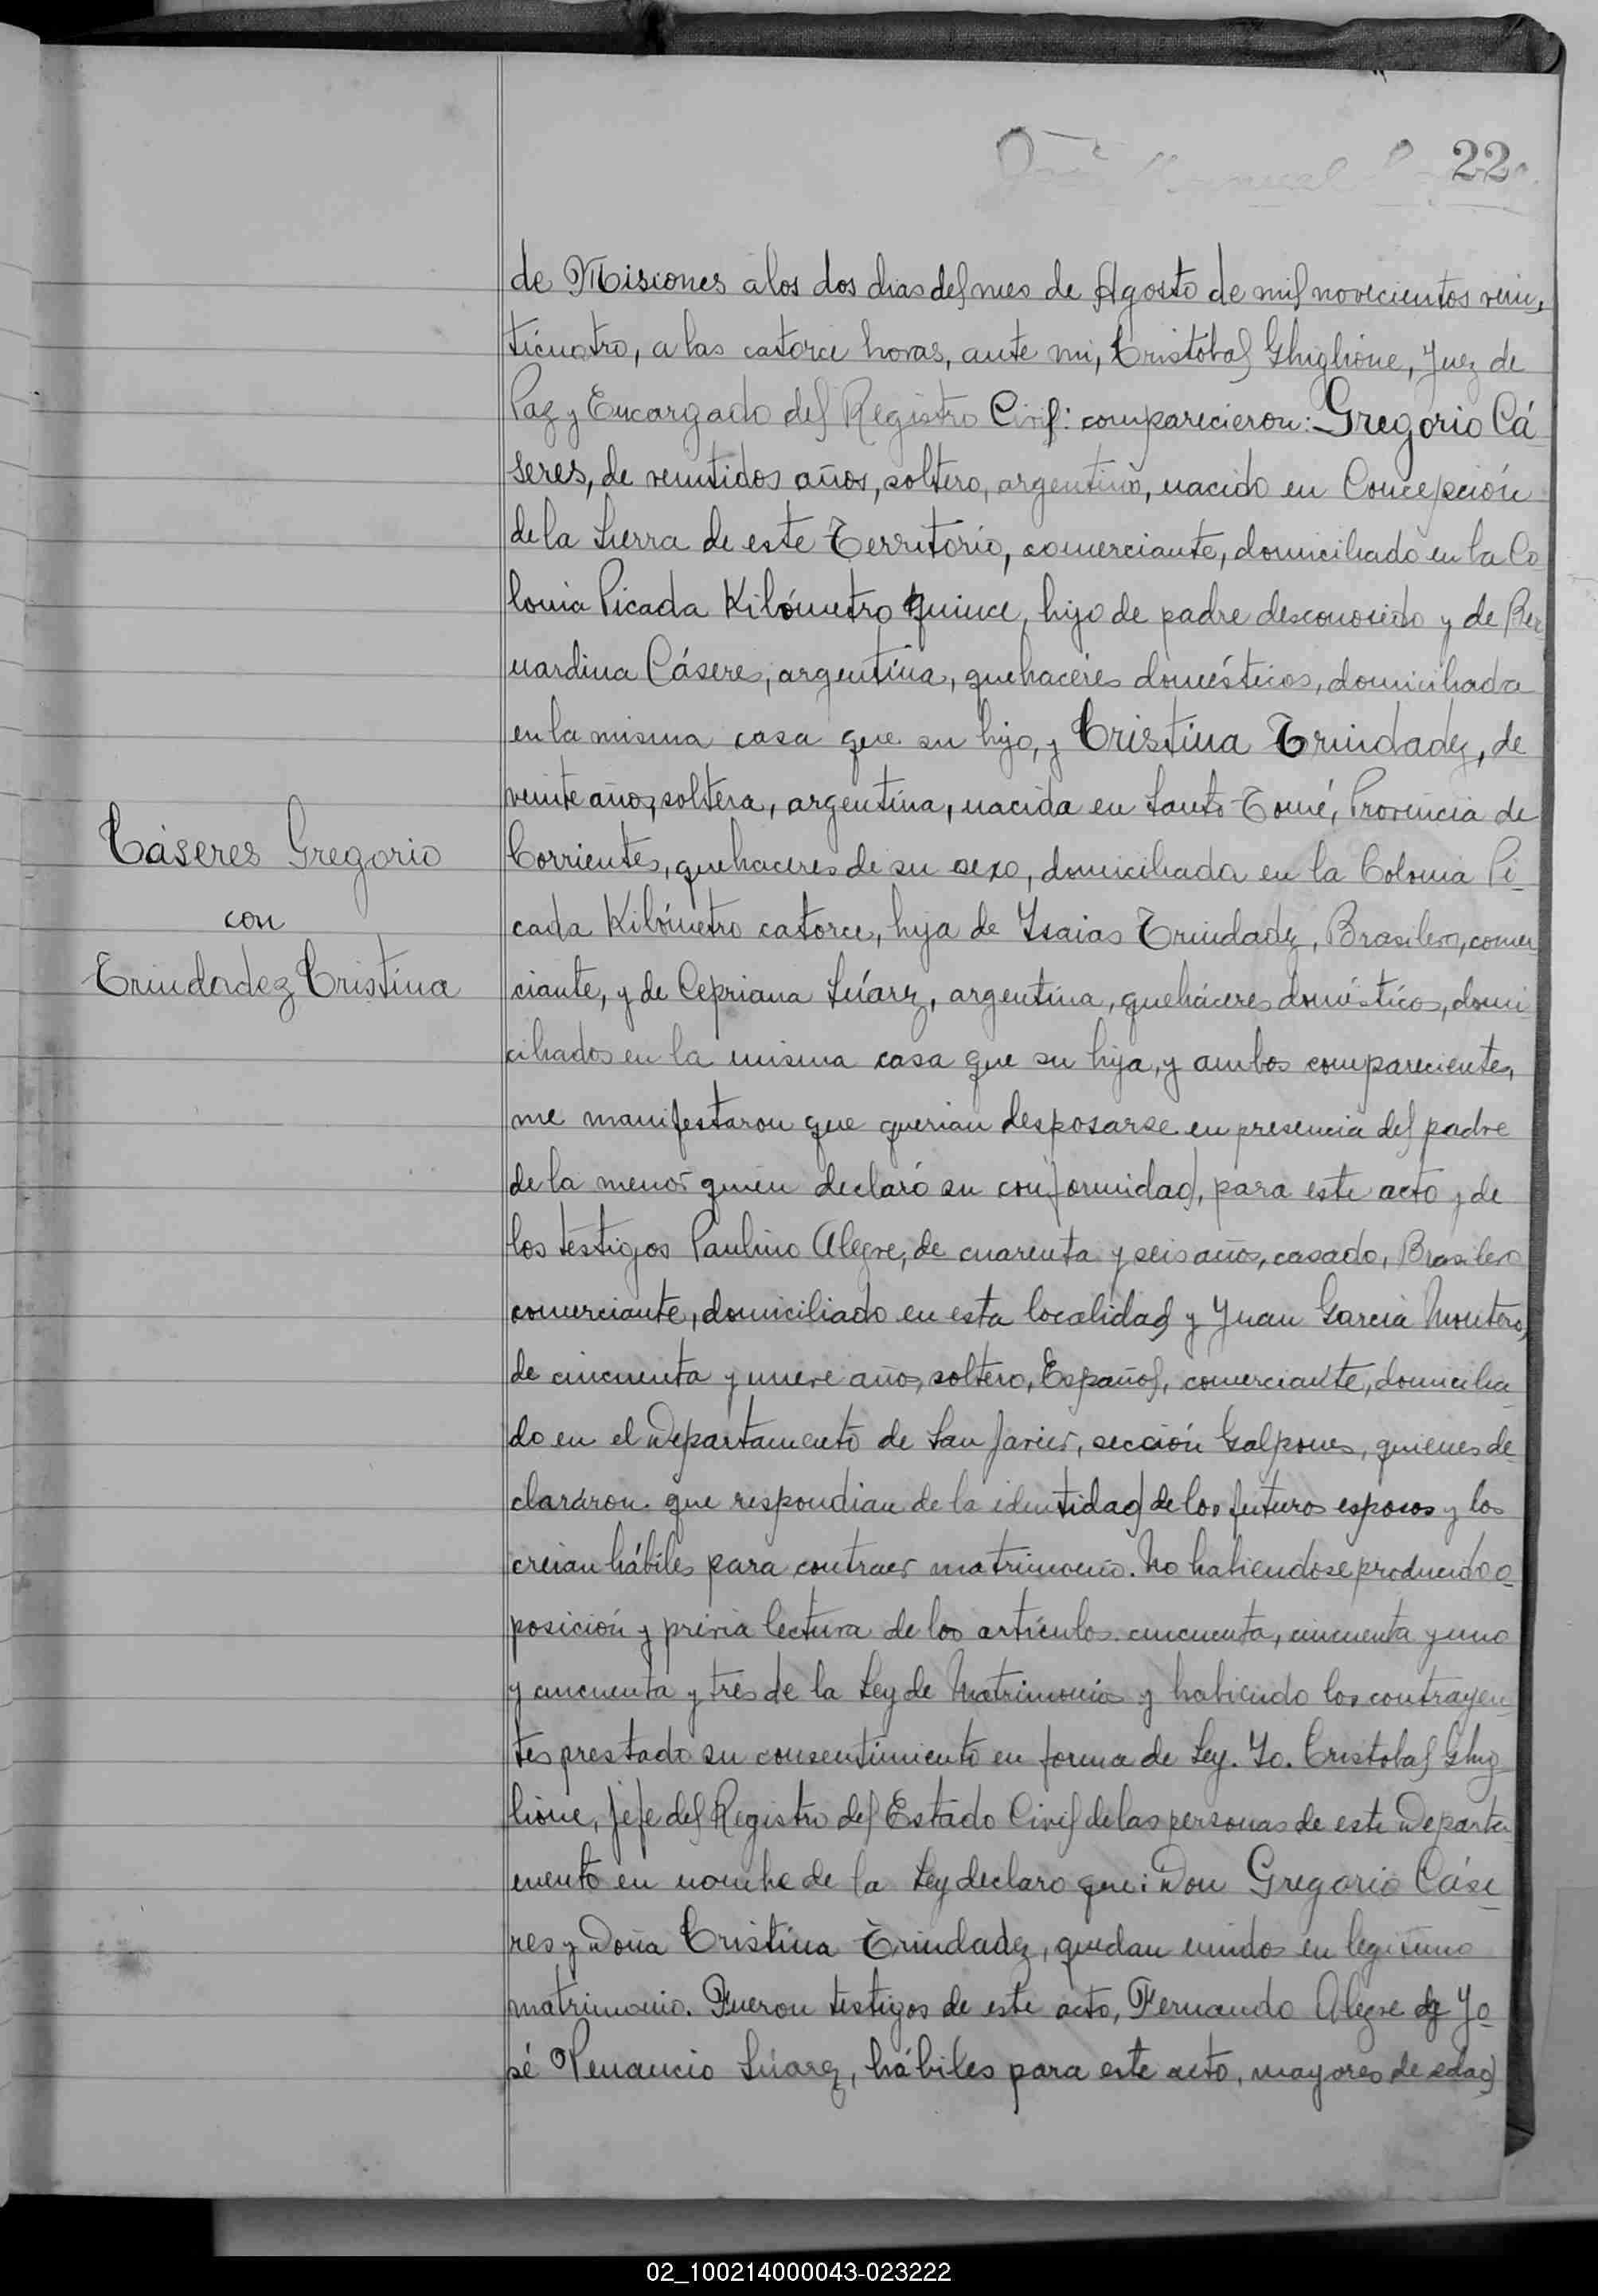 22
de Misiones a los dos dias del mes de Agosto de mil novecientos vein,
ticuatro, a las catorce horas, ante mi, Cristóbal Ghiglione, Juez de
Paz y Encargado del Registro Civil: comparecieron: Gregorio Cá
seres, de veintidos años, soltero, argentino, nacido en Concepción
de la Sierra de este Territorio, comerciante, domiciliado en la Co
lonia Picada Kilómetro quince, hijo de padre desconosido y de Ber
nardina Cáseres, argentina, quehaceres domésticos, domiciliada
en la misma casa que su hijo, y Cristina Trindadez, de
veinte años, soltera, argentina, nacida en Santo Tomé, Provincia de
Cáseres Gregorio
con
Trindadez Cristina
Corrientes, quehaceres de su sexo, domiciliada en la Colonia Pi-
cada Kilómetro catorce, hija de Isaias Trindadez, Brasilero, comer
ciante, y de Cepriana Súarez, argentina, quehaceres domésticos, domi
ciliados en la misma casa que su hija, y ambos comparecientes,
me manifestaron que querian desposarse en presencia del padre
de la menor quien declaró su conformidad, para este acto y de
los testigos Paulino Alegre, de cuarenta y seis años, casado, Brasilero
comerciante, domiciliado en esta localidad y Juan Garcia Montero,
de cincuenta y nueve años, soltero, Español, comerciante, domicilia
do en el Departamento de San Javier, sección Galpones, quienes de
claráron que respondian de la identidad de los futuros esposos y los
creian hábiles para contraer matrimonio. No habiendose producido o
posición y prévia lectura de los artículos cincuenta, cincuenta y uno
y cincuenta y tres de la Ley de Matrimonio y habiendo los contrayen
tes prestado su consentimiento en forma de Ley. Yo. Cristobal Ghig
lione, Jefe del Registro del Estado Civil de las personas de este Departa
mento en nombre de la Ley declaro que: Don Gregorio Cáse
res y Doña Cristina Trindadez, quedan unidos en legitimo
matrimonio. Fueron testigos de este acto, Fernando Alegre y Jo
sé Venancio Súarez, hábiles para este acto, mayores de edad
02_100214000043-023222